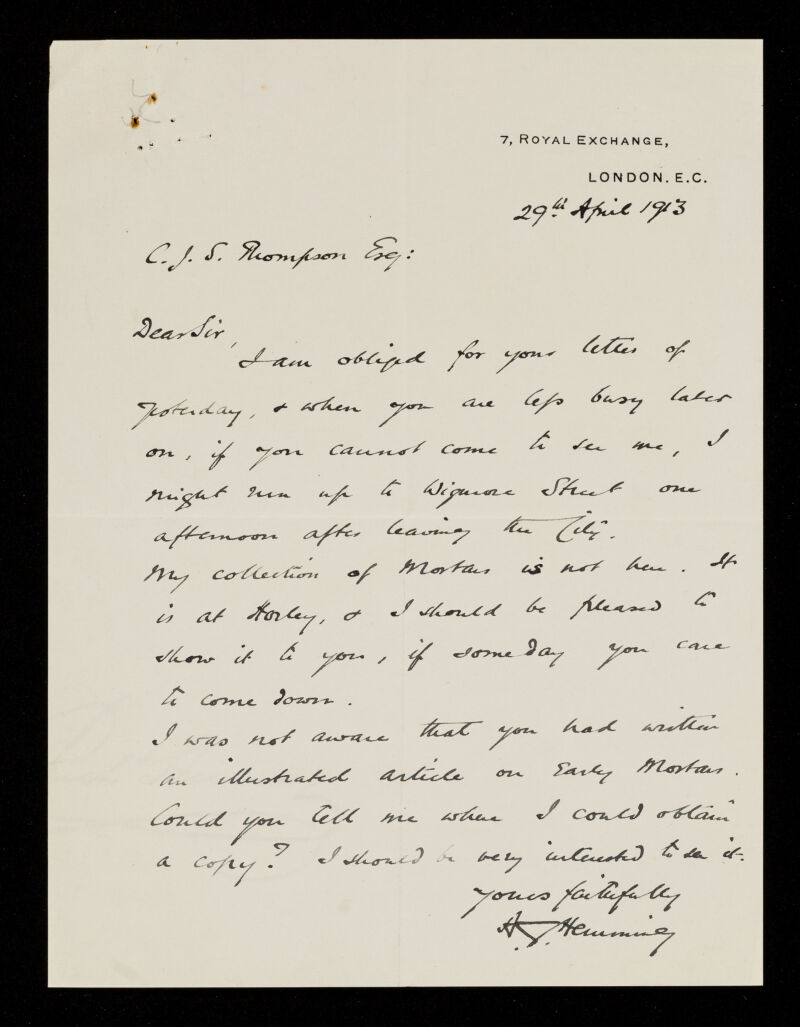 7, ROYAL EXCHANGE,
LONDON. E.C.
29th April 1913
C. J. S. Thompson Esq:
Dear Sir,
I am obliged for your letter of
yesterday, & when you are less busy later
on, if you cannot come to see me, I
might run up to Wigmore Street one
afternoon after leaving the City.
My collection of Mortars is not here. It
is at Horley, & I should be pleased to
show it to you, if some day you care
to come down.
I was not aware that you had written
an illustrated article on Early Mortars.
Could you tell me where I could obtain
a copy? I should be very interested to see it.
Yours faithfully
Hemming